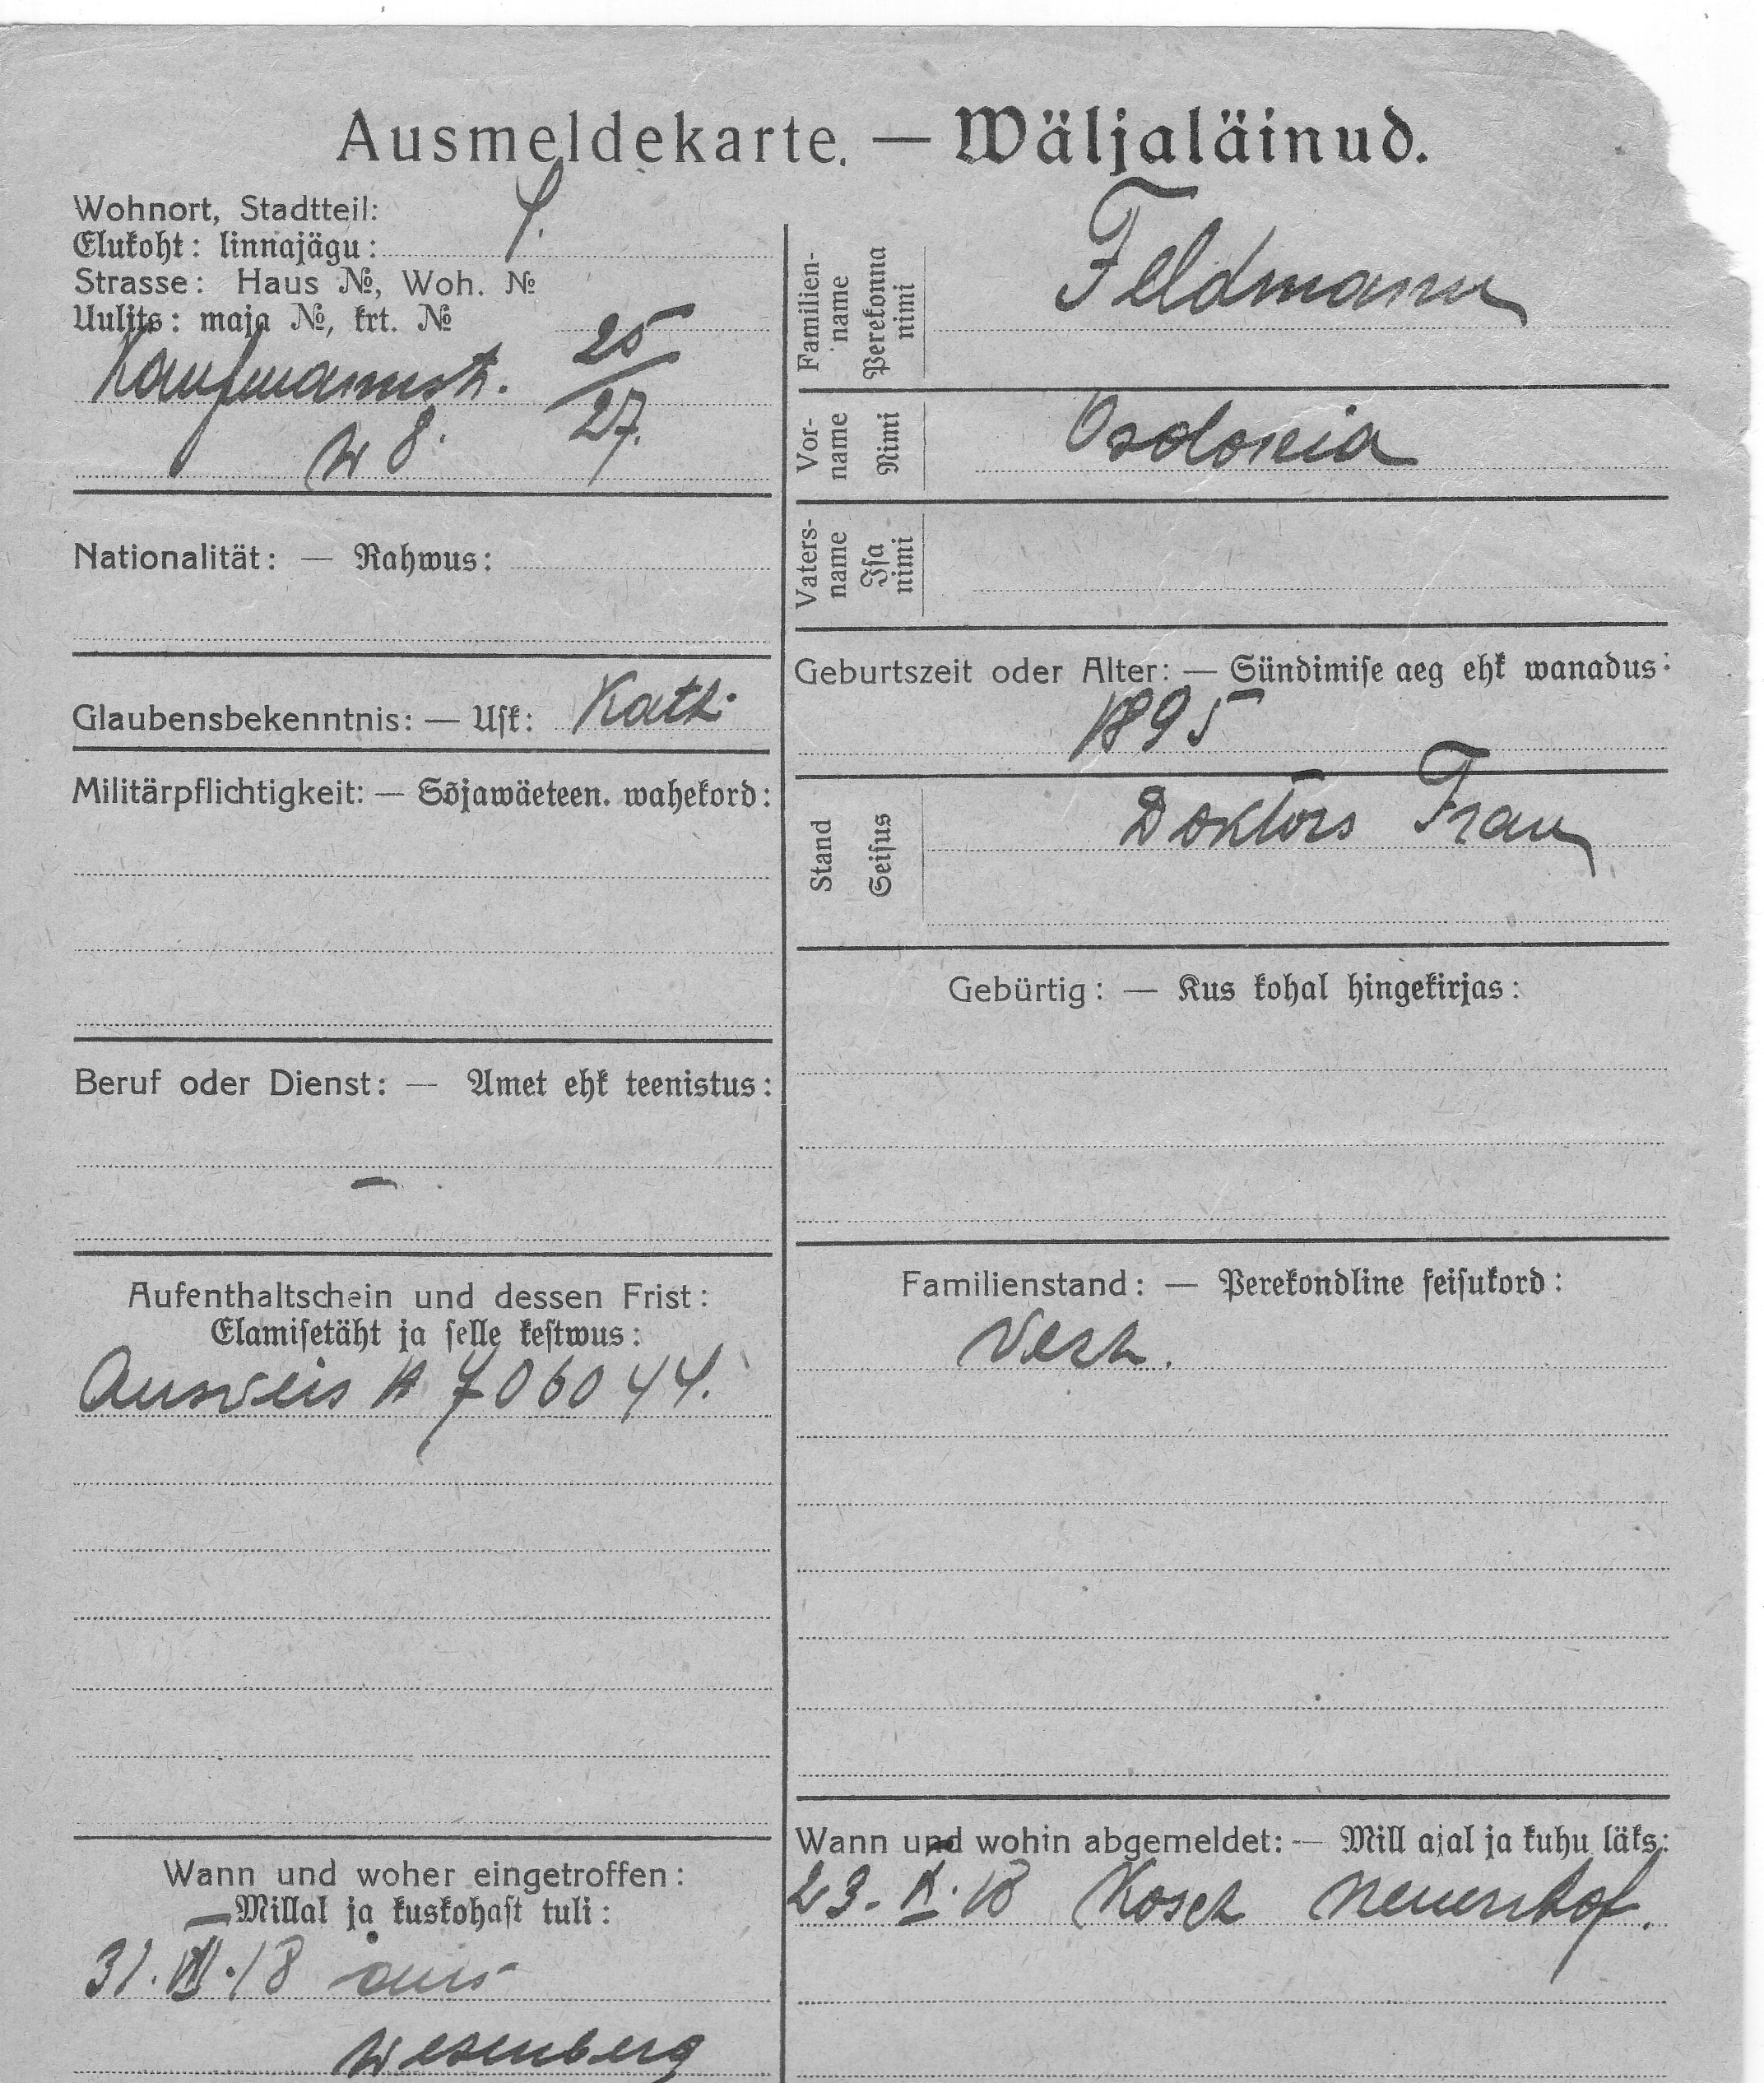 Ausmeldekarte. — Wäljaläinud.
Wohnort, Stadtteil:
Elukoht: linnajägu:
Strasse: Haus №, Woh. №
Uulits: maja №, krt. №
Kaufmannstr. 25/27.
W 8.
Nationalität: — Rahwus:
Glaubensbekenntnis: — Usk: Kath.
Militärpflichtigkeit: — Sõjawäeteen. wahekord:
Beruf oder Dienst: — Amet ehk teenistus:
—
Aufenthaltschein und dessen Frist:
Elamisetäht ja selle kestwus:
Ausweis № 706044.
Wann und woher eingetroffen:
Millal ja kuskohast tuli:
31.VIII.18 aus
Wesenberg
Familien-
name
Perekonna
nimi
Feldmann
Vor-
name
Nimi
Vaters-
name
Isa
nimi
Geburtszeit oder Alter: — Sündimise aeg ehk wanadus:
1895
Stand
Seisus
Doktors Frau
Gebürtig: — Kus kohal hingekirjas:
Familienstand: — Perekondline seisukord:
Verh.
Wann und wohin abgemeldet: — Mill ajal ja kuhu läks:
23. 18 Kosch Neuenhof.